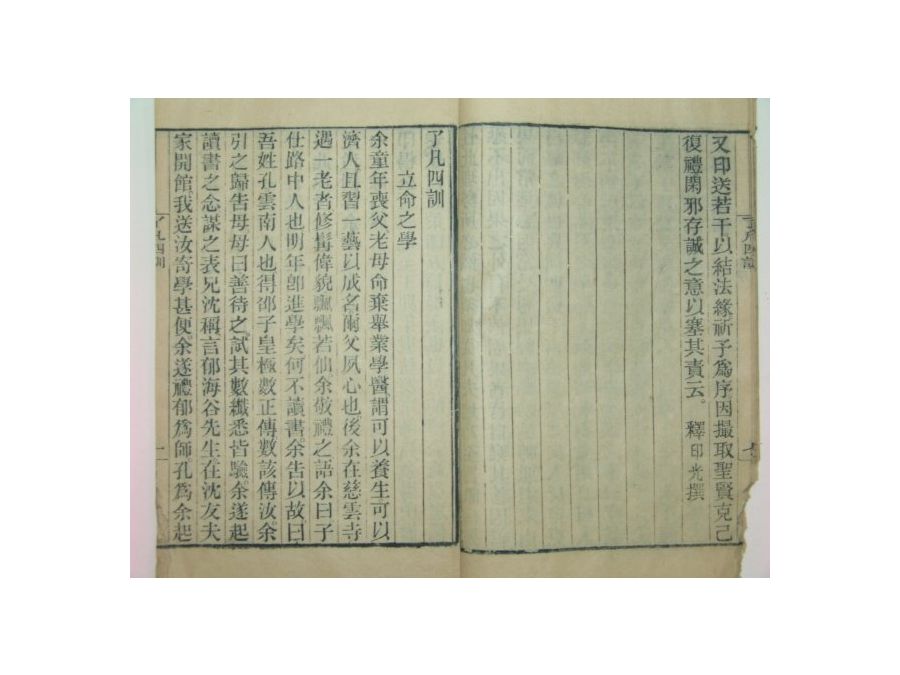 又印送若干以結法緣祈予爲序因撮取聖賢克己
復禮閑邪存誠之意以塞其責云。 釋印光撰
了凡四訓
立命之學
余童年喪父老母命棄舉業學醫謂可以養生可以
濟人且習一藝以成名爾父夙心也後余在慈雲寺
遇一老者修髯偉貌飄飄若仙余敬禮之語余曰子
仕路中人也明年卽進學矣何不讀書余告以故曰
吾姓孔雲南人也得邵子皇極數正傳數該傳汝余
引之歸告母母曰善待之試其數纖悉皆驗余遂起
讀書之念謀之表兄沈稱言郁海谷先生在沈友夫
家開館我送汝寄學甚便余遂禮郁爲師孔爲余起
了凡四訓
一